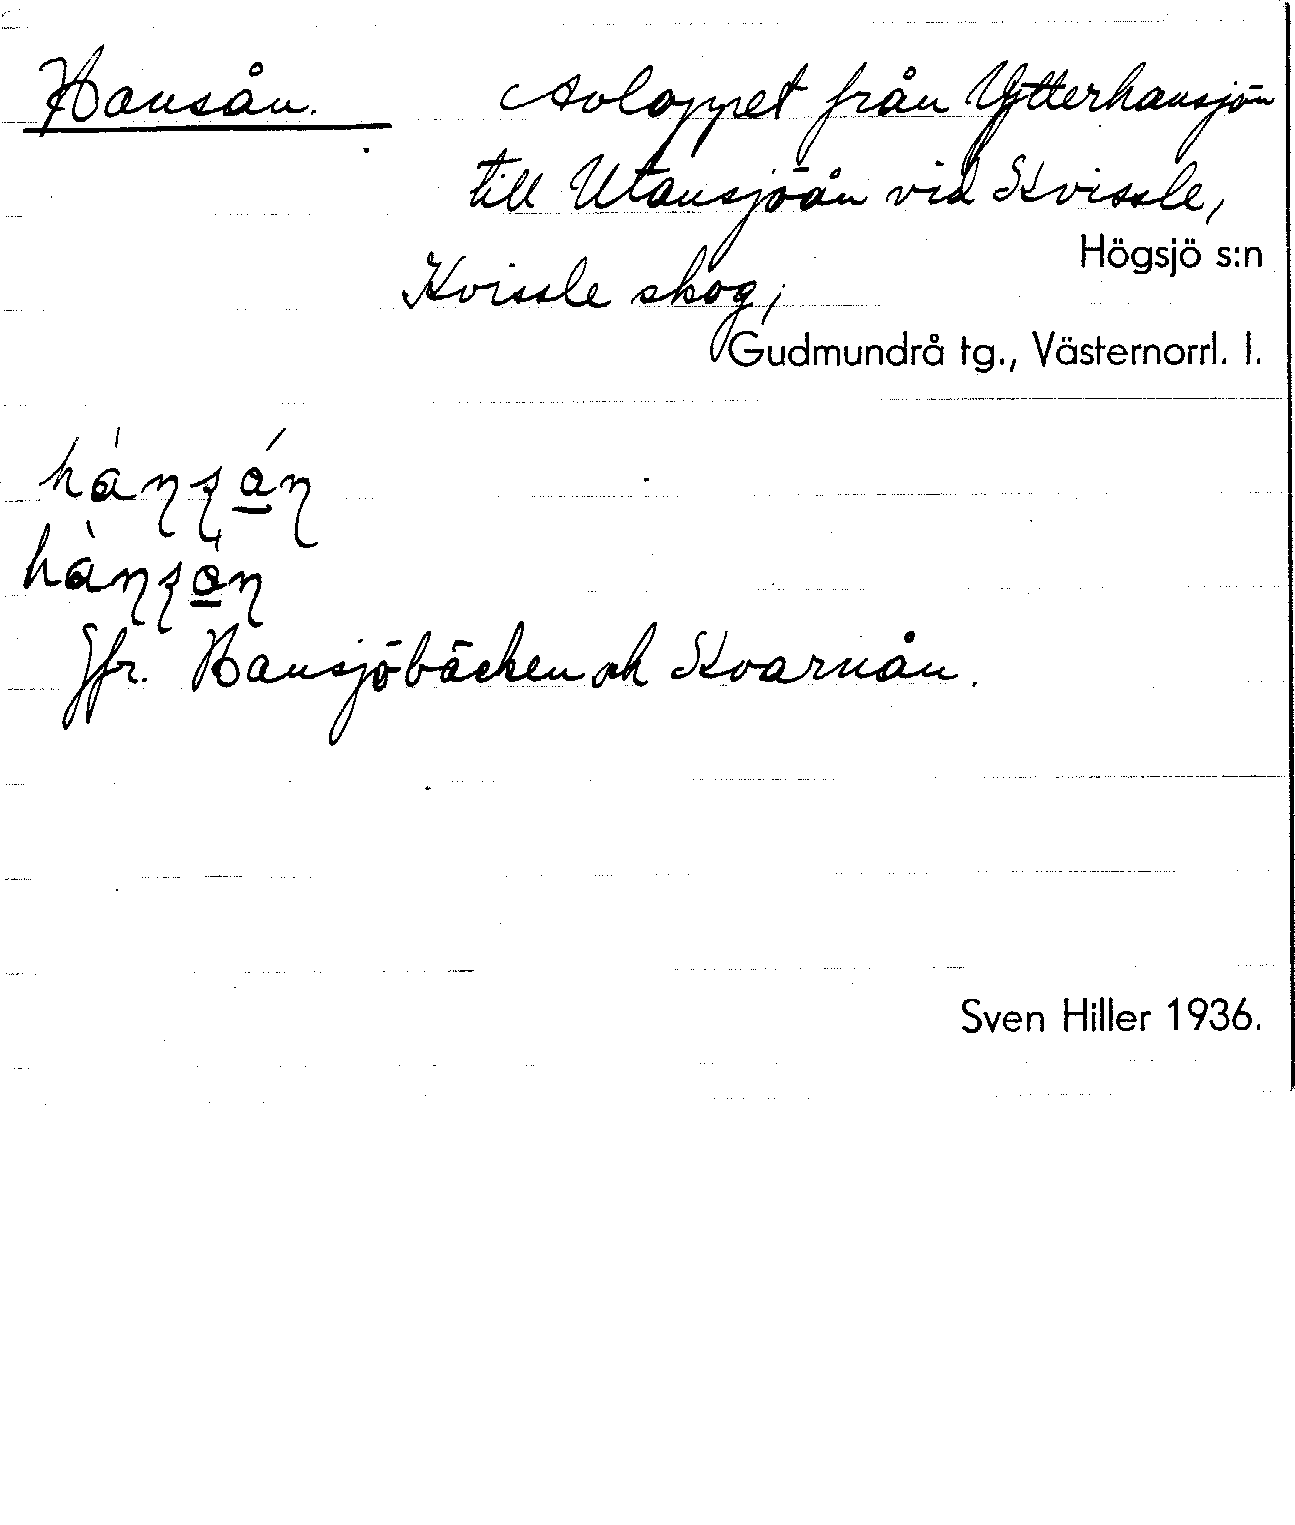 Hansån. Avloppet från Ytterhansjön
till Utansjöån vid Kvissle,
Högsjö s:n
Kvissle skog,
Gudmundrå tg., Västernorrl. l.
Jfr. Hansjöbäcken och Kvarnån.
Sven Hiller 1936.